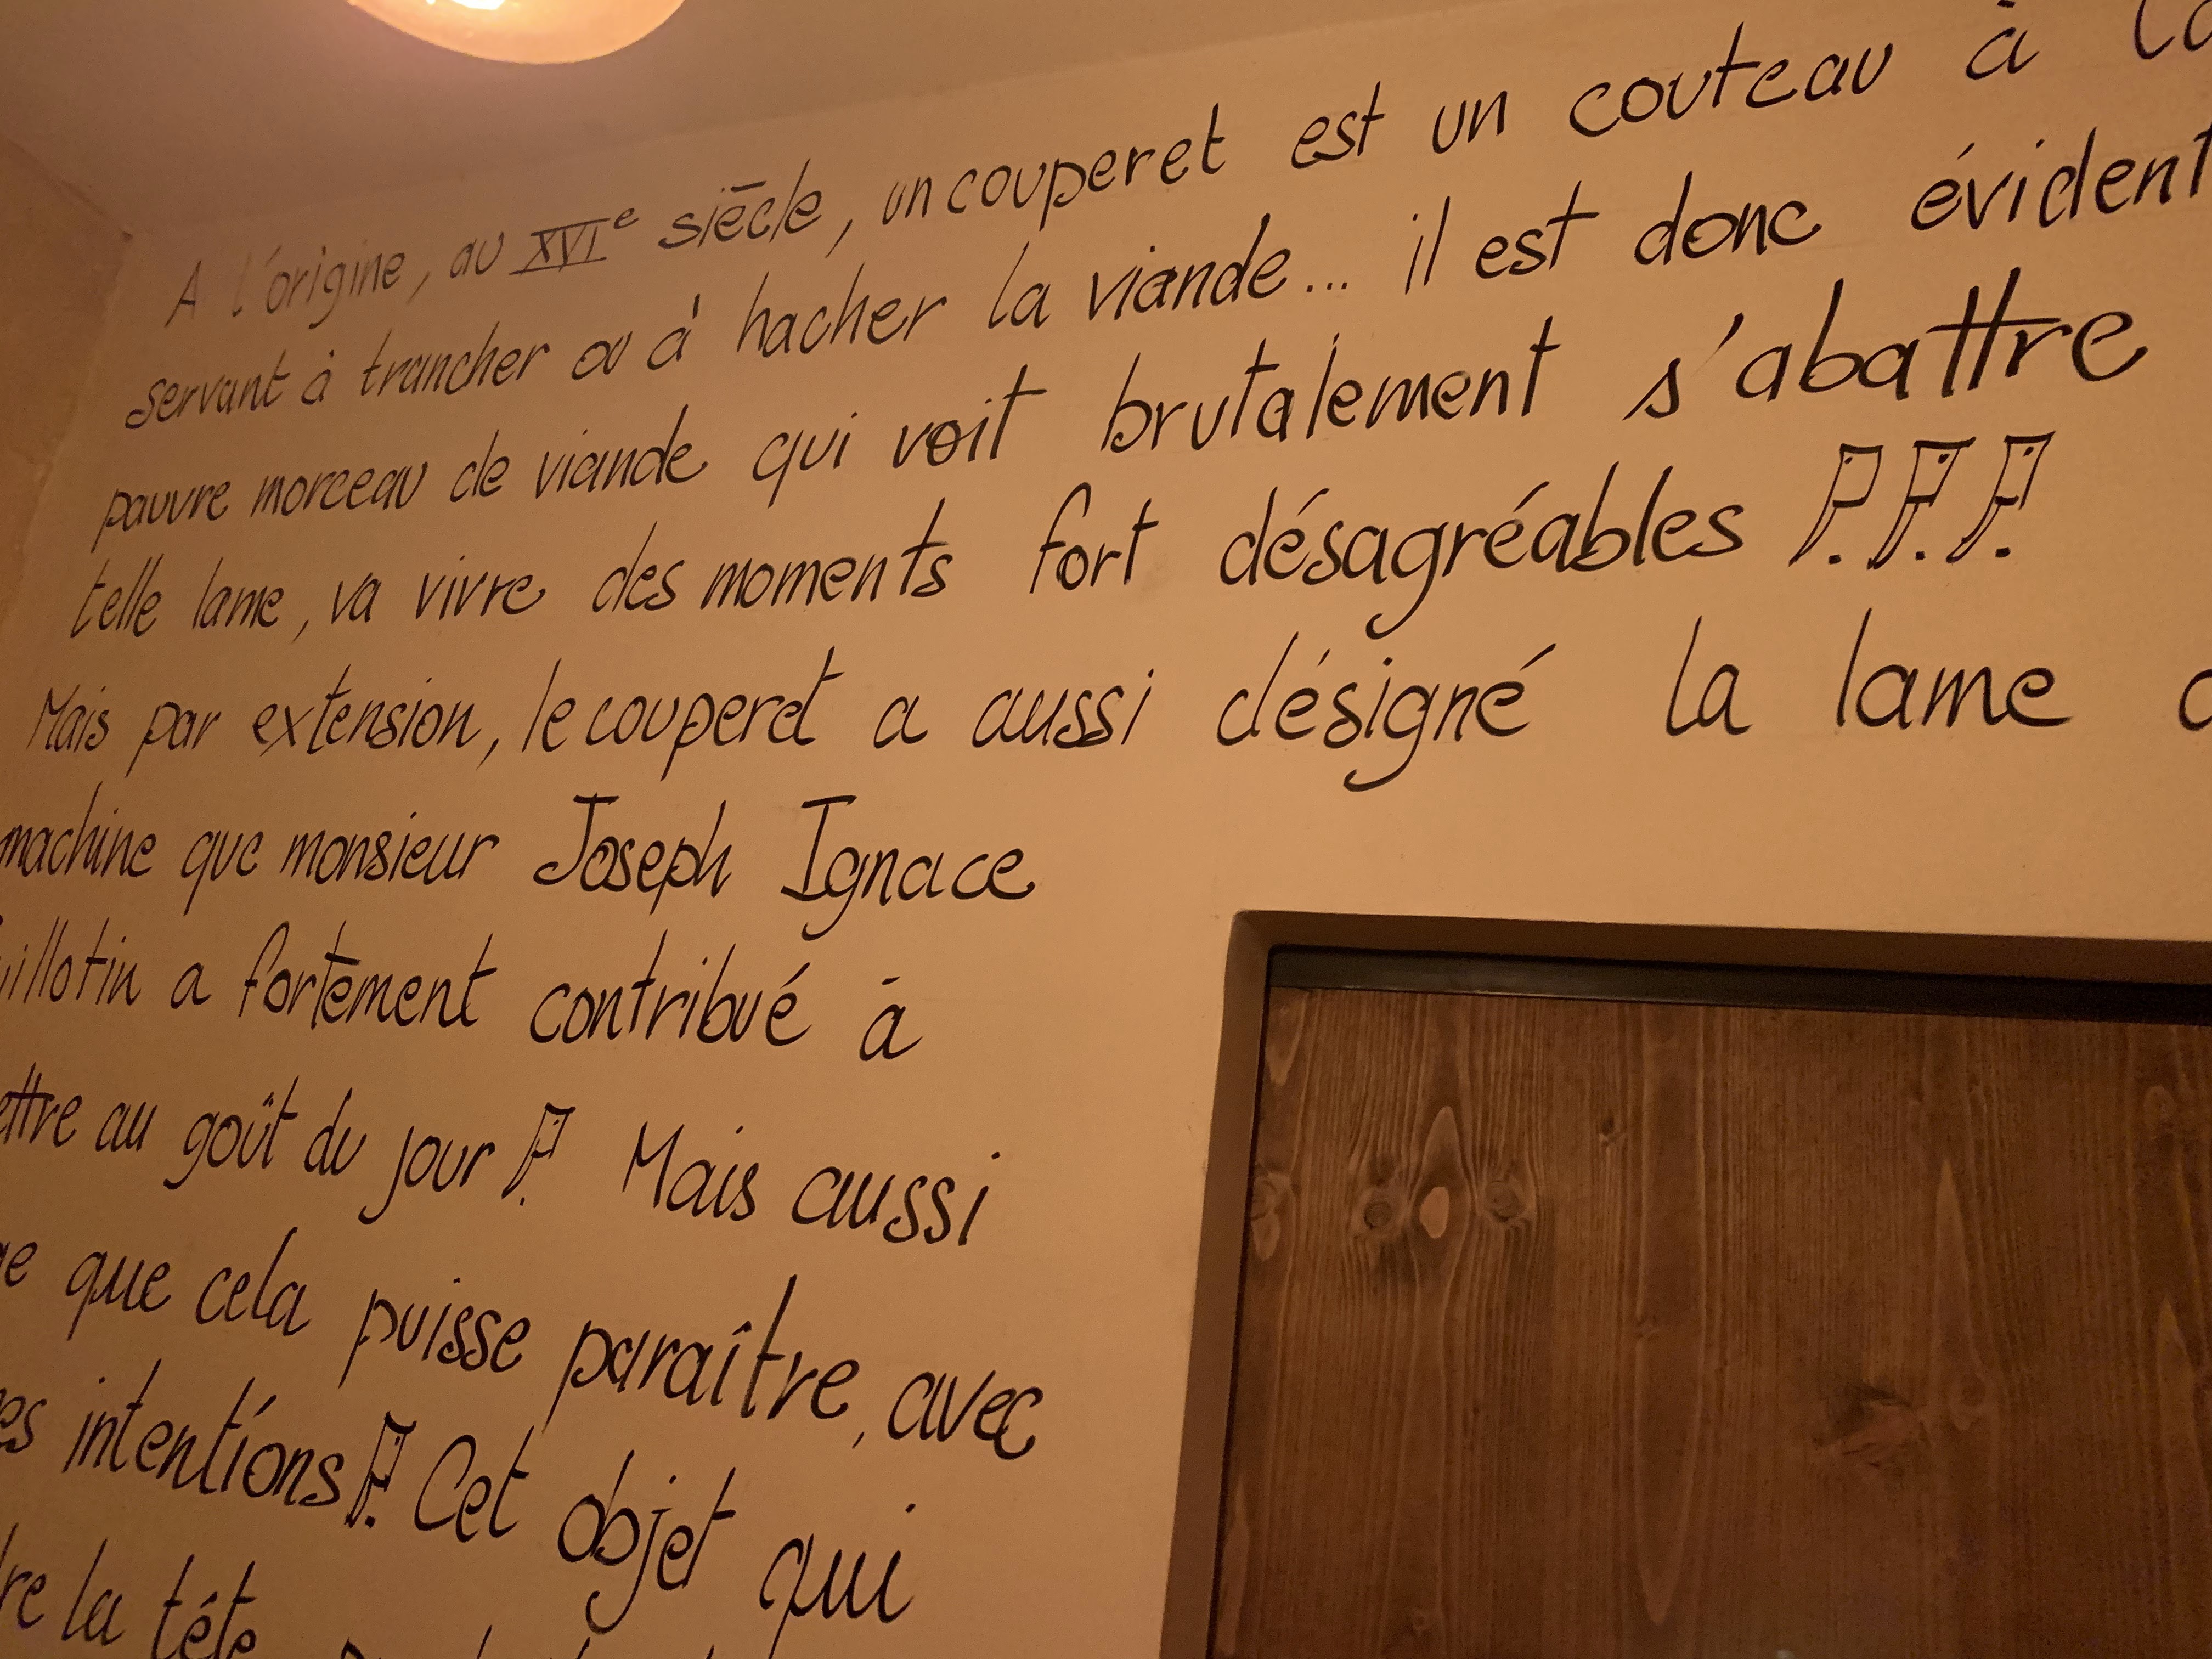 A l'origine, au XVIe siècle, un couperet est un couteau à
servant à trancher ou à hacher la viande... il est donc évident
pauvre morceau de viande qui voit brutalement s'abattre
telle lame, va vivre des moments fort désagréables !!!
Mais par extension, le couperet a aussi désigné la lame
machine que monsieur Joseph Ignace
uillotin a fortement contribué à
ettre au goût du jour ! Mais aussi
que cela puisse paraître, avec
es intentions ! Cet objet qui
re la tête